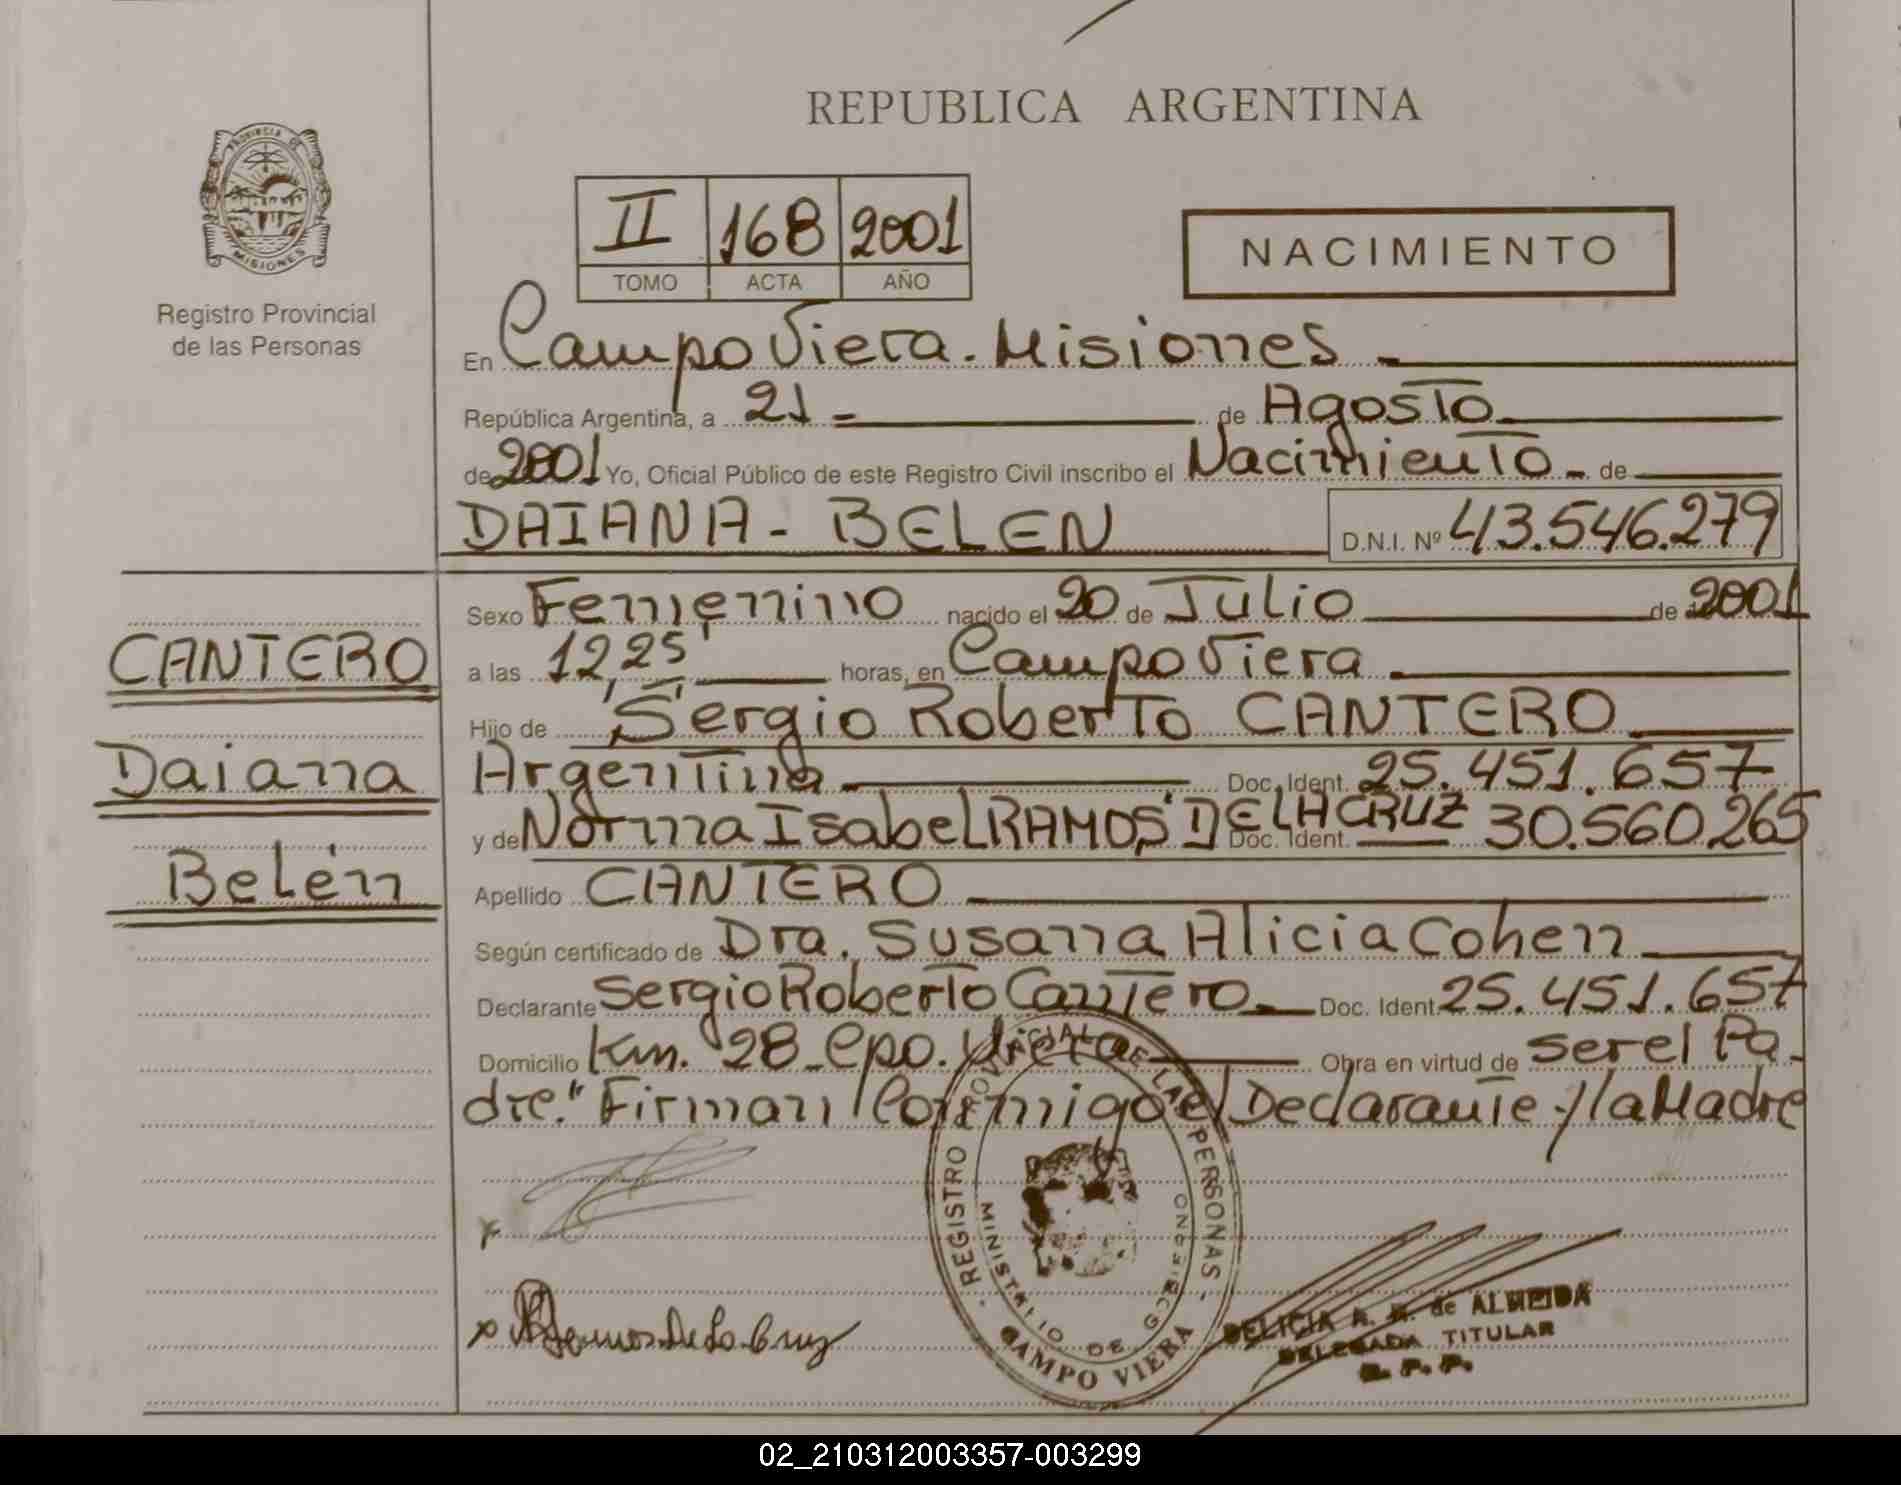 REPUBLICA ARGENTINA
PROVINCIA DE
MISIONES
Registro Provincial
de las Personas
II 168 2001
TOMO ACTA AÑO
NACIMIENTO
En Campo Viera. Misiones
República Argentina, a 21 de Agosto
de 2001 Yo, Oficial Público de este Registro Civil inscribo el Nacimiento de
DAIANA - BELEN D.N.I. Nº 43.546.279
CANTERO
Daiana
Belén
Sexo Femenino nacido el 20 de Julio de 2001
a las 12,25' horas, en Campo Viera
Hijo de Sergio Roberto CANTERO
Argentina Doc. Ident. 25.451.657
y de Norma Isabel RAMOS DE LA CRUZ Doc. Ident. 30.560.265
Apellido CANTERO
Según certificado de Dra. Susana Alicia Cohen
Declarante Sergio Roberto Cantero Doc. Ident. 25.451.657
Domicilio Km. 28 - Cpo. Viera Obra en virtud de ser el Pa-
dre." Firman Conmigo el Declarante y la Madre
REGISTRO PROVINCIAL DE LAS PERSONAS
MINISTERIO DE GOBIERNO
CAMPO VIERA
x
x Ramos De La Cruz
DELICIA R. R. de ALMEIDA
DELEGADA TITULAR
R. P. P.
02_210312003357-003299